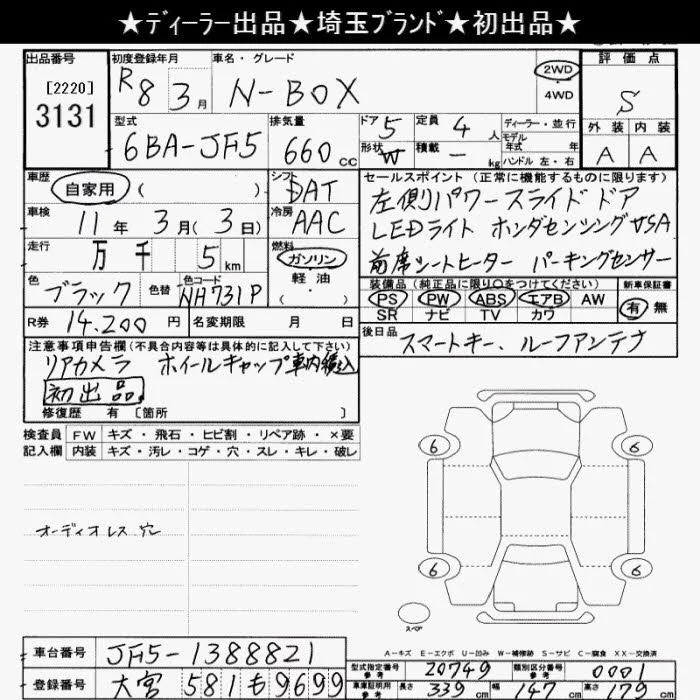 ★ディーラー出品★埼玉ブランド★初出品★
出品番号 初度登録年月 車名・グレード 2WD 4WD 評価点
[2220]
3131 R8年3月 N-BOX S
型式 排気量 ドア 定員 ディーラー・並行 外装 内装
6BA-JF5 660cc 5 4人 モデル年式 年 A A
形状 W 積載 - kg ハンドル 左・右
車歴 自家用 ( ) シフト DAT
セールスポイント(正常に機能するものに限ります)
左側パワースライドドア
車検 11年3月(3日) 冷房 AAC
LEDライト ホンダセンシング サSA
走行 万 千 5km 燃料 ガソリン 軽油 ( )
前席シートヒーター パーキングセンサー
色 ブラック 色替 色コード NH731P
装備品(純正品に限り○をつけてください) 新車保証書
PS PW ABS エアB AW 有 無
SR ナビ TV カワ
R券 14,200円 名変期限 月 日
後日品 スマートキー、ルーフアンテナ
注意事項申告欄(不具合内容等は具体的に記入して下さい)
リアカメラ ホイールキャップ車内積込
初出品
修復歴 有 [箇所 ]
検査員 FW キズ・飛石・ヒビ割・リペア跡・×要
記入欄 内装 キズ・汚レ・コゲ・穴・スレ・キレ・破レ
6 6
オーディオレス 穴
6 6
スペア
A-キズ E-エクボ U-凹み W-補修跡 S-サビ C-腐食 XX-交換済
車台番号 JF5-1388821
型式指定番号 参考 20749 類別区分番号 参考 0001
登録番号 大宮 581 も 9699
車庫証明用 参考 長さ 339cm 幅 147cm 高さ 179cm